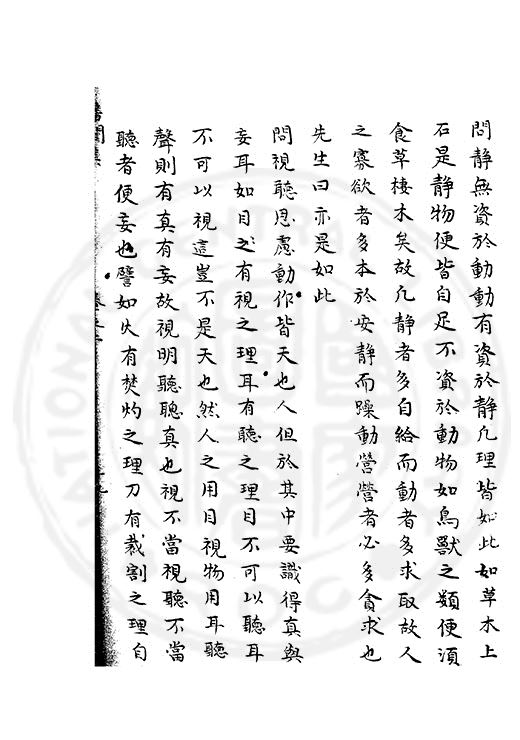 問靜無資於動動有資於靜凢理皆如此如草木土
石是靜物便皆自足不資於動物如鳥獸之類便湏
食草棲木矣故凢靜者多自給而動者多求取故人
之寡欲者多本於安靜而躁動營營者必多貪求也
先生曰亦是如此
問視聽思慮動作皆天也人但於其中要識得真與
妄耳如目之有視之理耳有聽之理目不可以聽耳
不可以視這豈不是天也然人之用目視物用耳聽
聲則有真有妄故視明聽聰真也視不當視聽不當
聽者便妄也譬如火有焚灼之理刀有裁割之理自